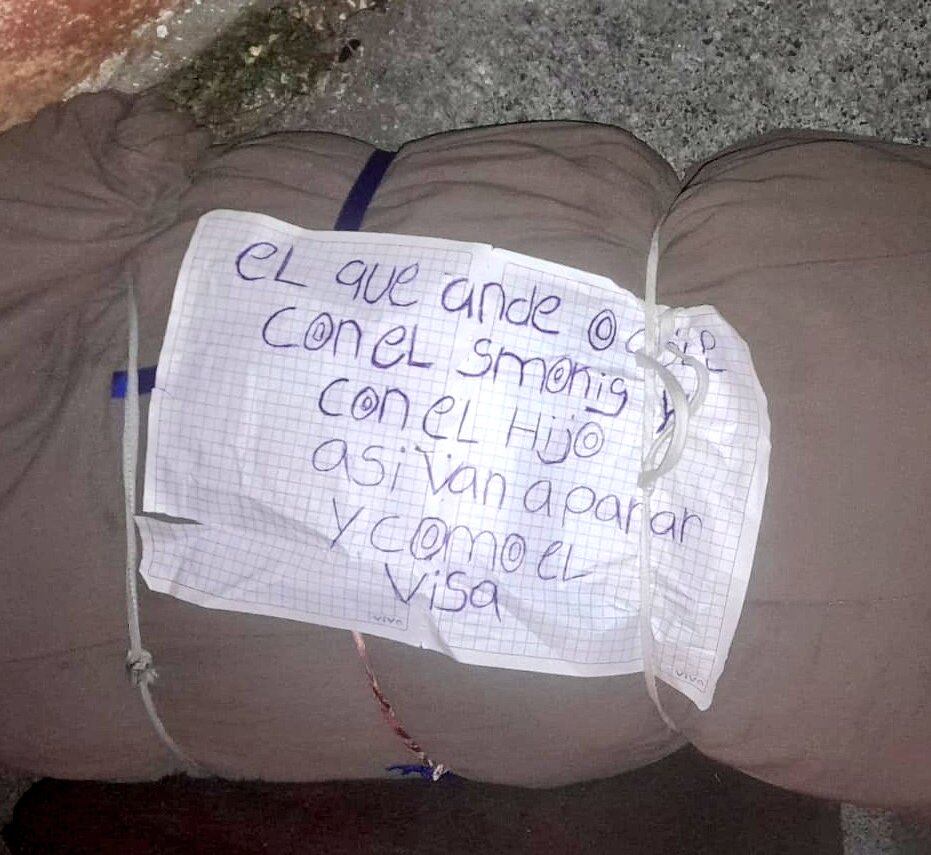 EL que ande o
con el smonig y
con el Hijo
asi van a parar
y como el
visa
vivo
vivo